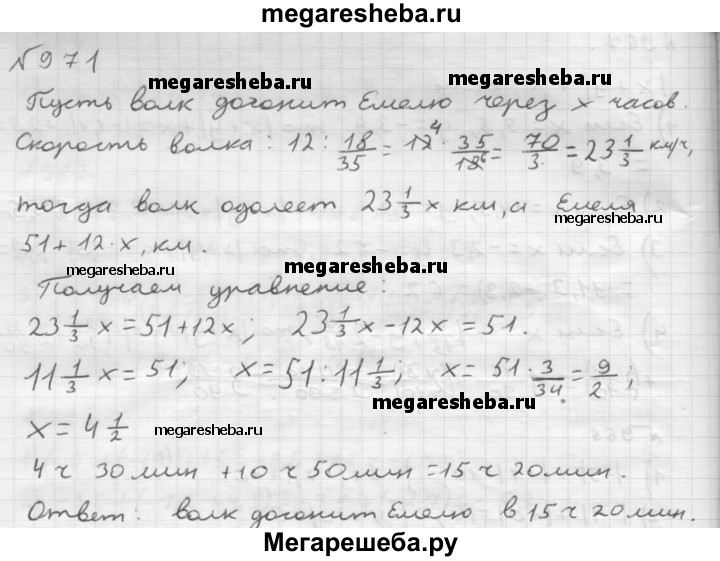 megaresheba.ru
№971
megaresheba.ru megaresheba.ru
Пусть волк догонит Емелю через x часов.
Скорость волка: 12 : 18/35 = 12 4 · 35/18 6 = 70/3 = 23 1/3 км/ч,
тогда волк одолеет 23 1/3 x км, а Емеля
megaresheba.ru
51 + 12 · x, км.
megaresheba.ru megaresheba.ru
Получаем уравнение:
23 1/3 x = 51 + 12x; 23 1/3 x - 12x = 51.
11 1/3 x = 51; x = 51 : 11 1/3; x = 51 · 3/34 = 9/2;
megaresheba.ru
x = 4 1/2 megaresheba.ru
4 ч 30 мин + 10 ч 50 мин = 15 ч 20 мин.
Ответ: волк догонит Емелю в 15 ч 20 мин.
Мегарешеба.ру